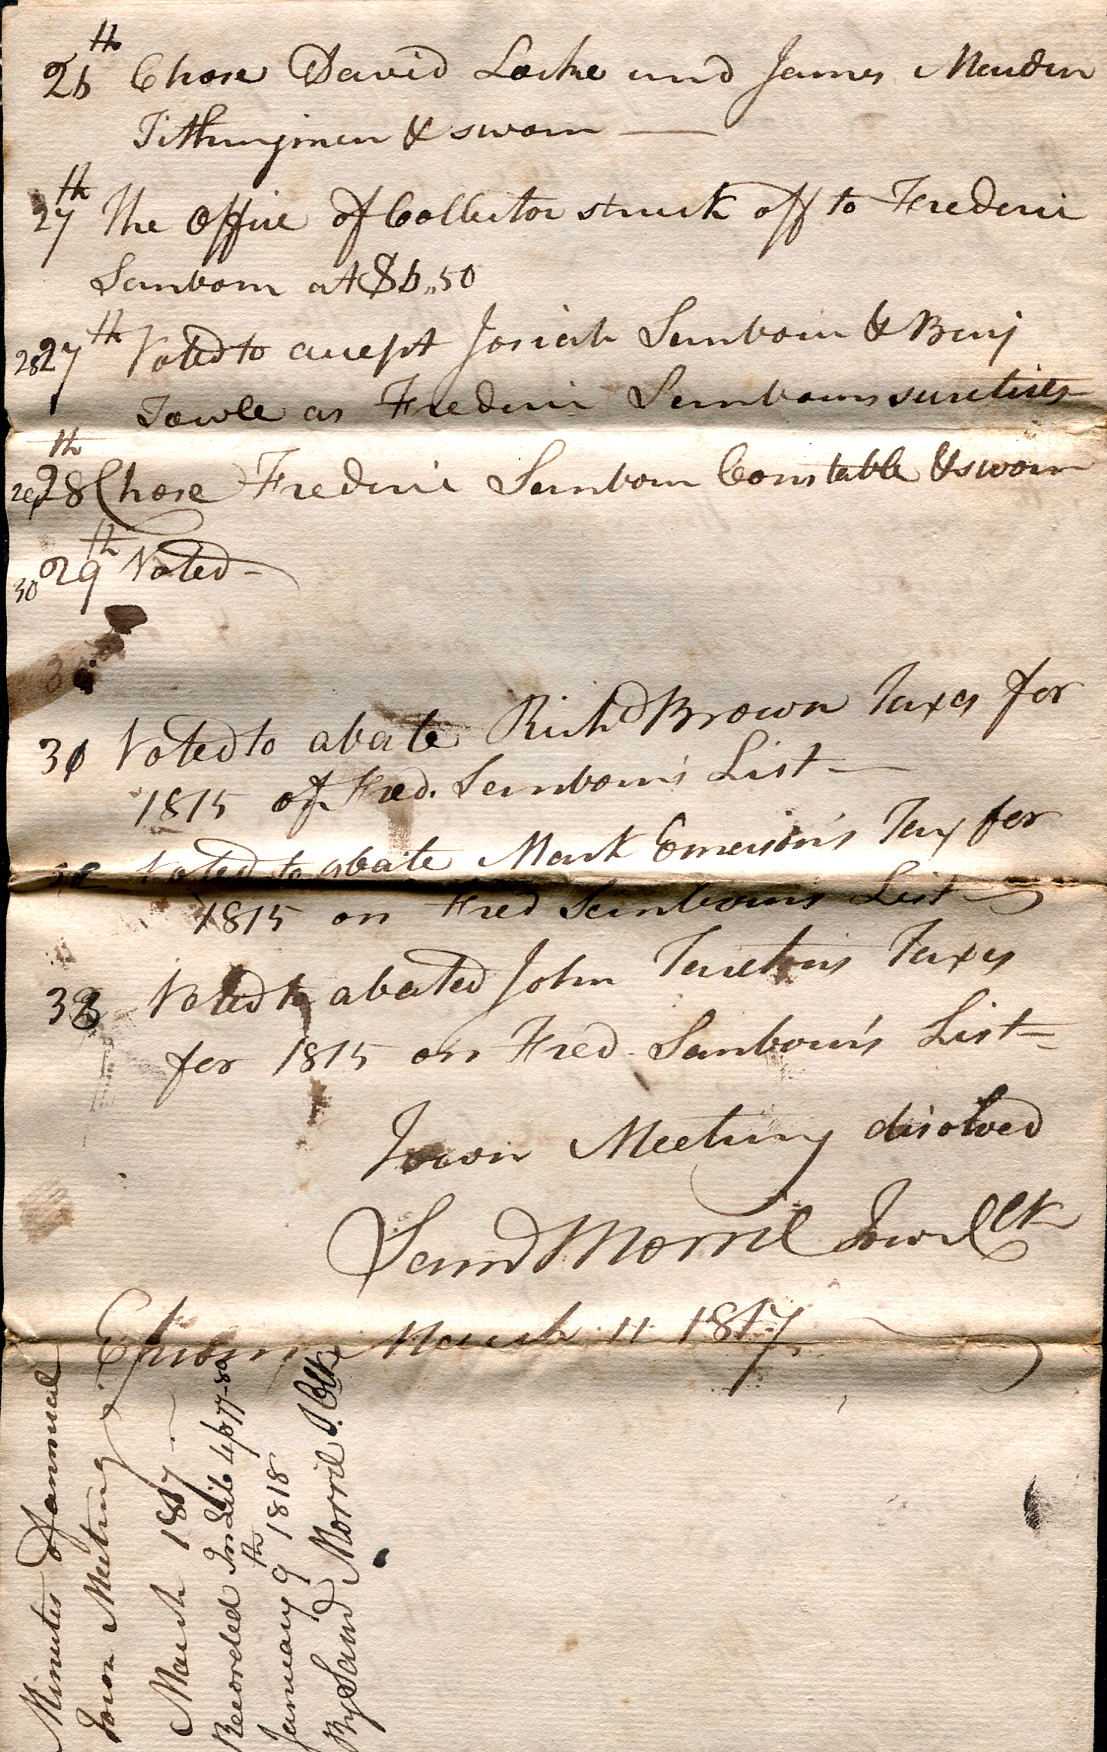 26th Chose David Locke and James Marden
Tithingmen & sworn —
27th The Office of Collector struck off to Frederic
Sanborn at $6,,50
28 27th Voted to accept Josiah Sanborn & Benj
Towle as Frederic Sanborns sureties
29 28th Chose Frederic Sanborn Constable & sworn
30 29th Voted —
31 Voted to abate Richd Brown Taxes for
1815 of Fred. Sanborn's List —
32 Voted to abate Mark Emerson's Tax for
1815 on Fred Sanborn's List —
33 Voted to abated John Tarlton's Taxes
for 1815 on Fred. Sanborn's List —
Town Meeting disolved
Samd Morril Town Clk
Epsom March 11 1817
Minutes of annual
Town Meeting
March 1817 —
Recorded In Lib 4 p 77-80
January 9th 1818
By Samd Morril T. Clk